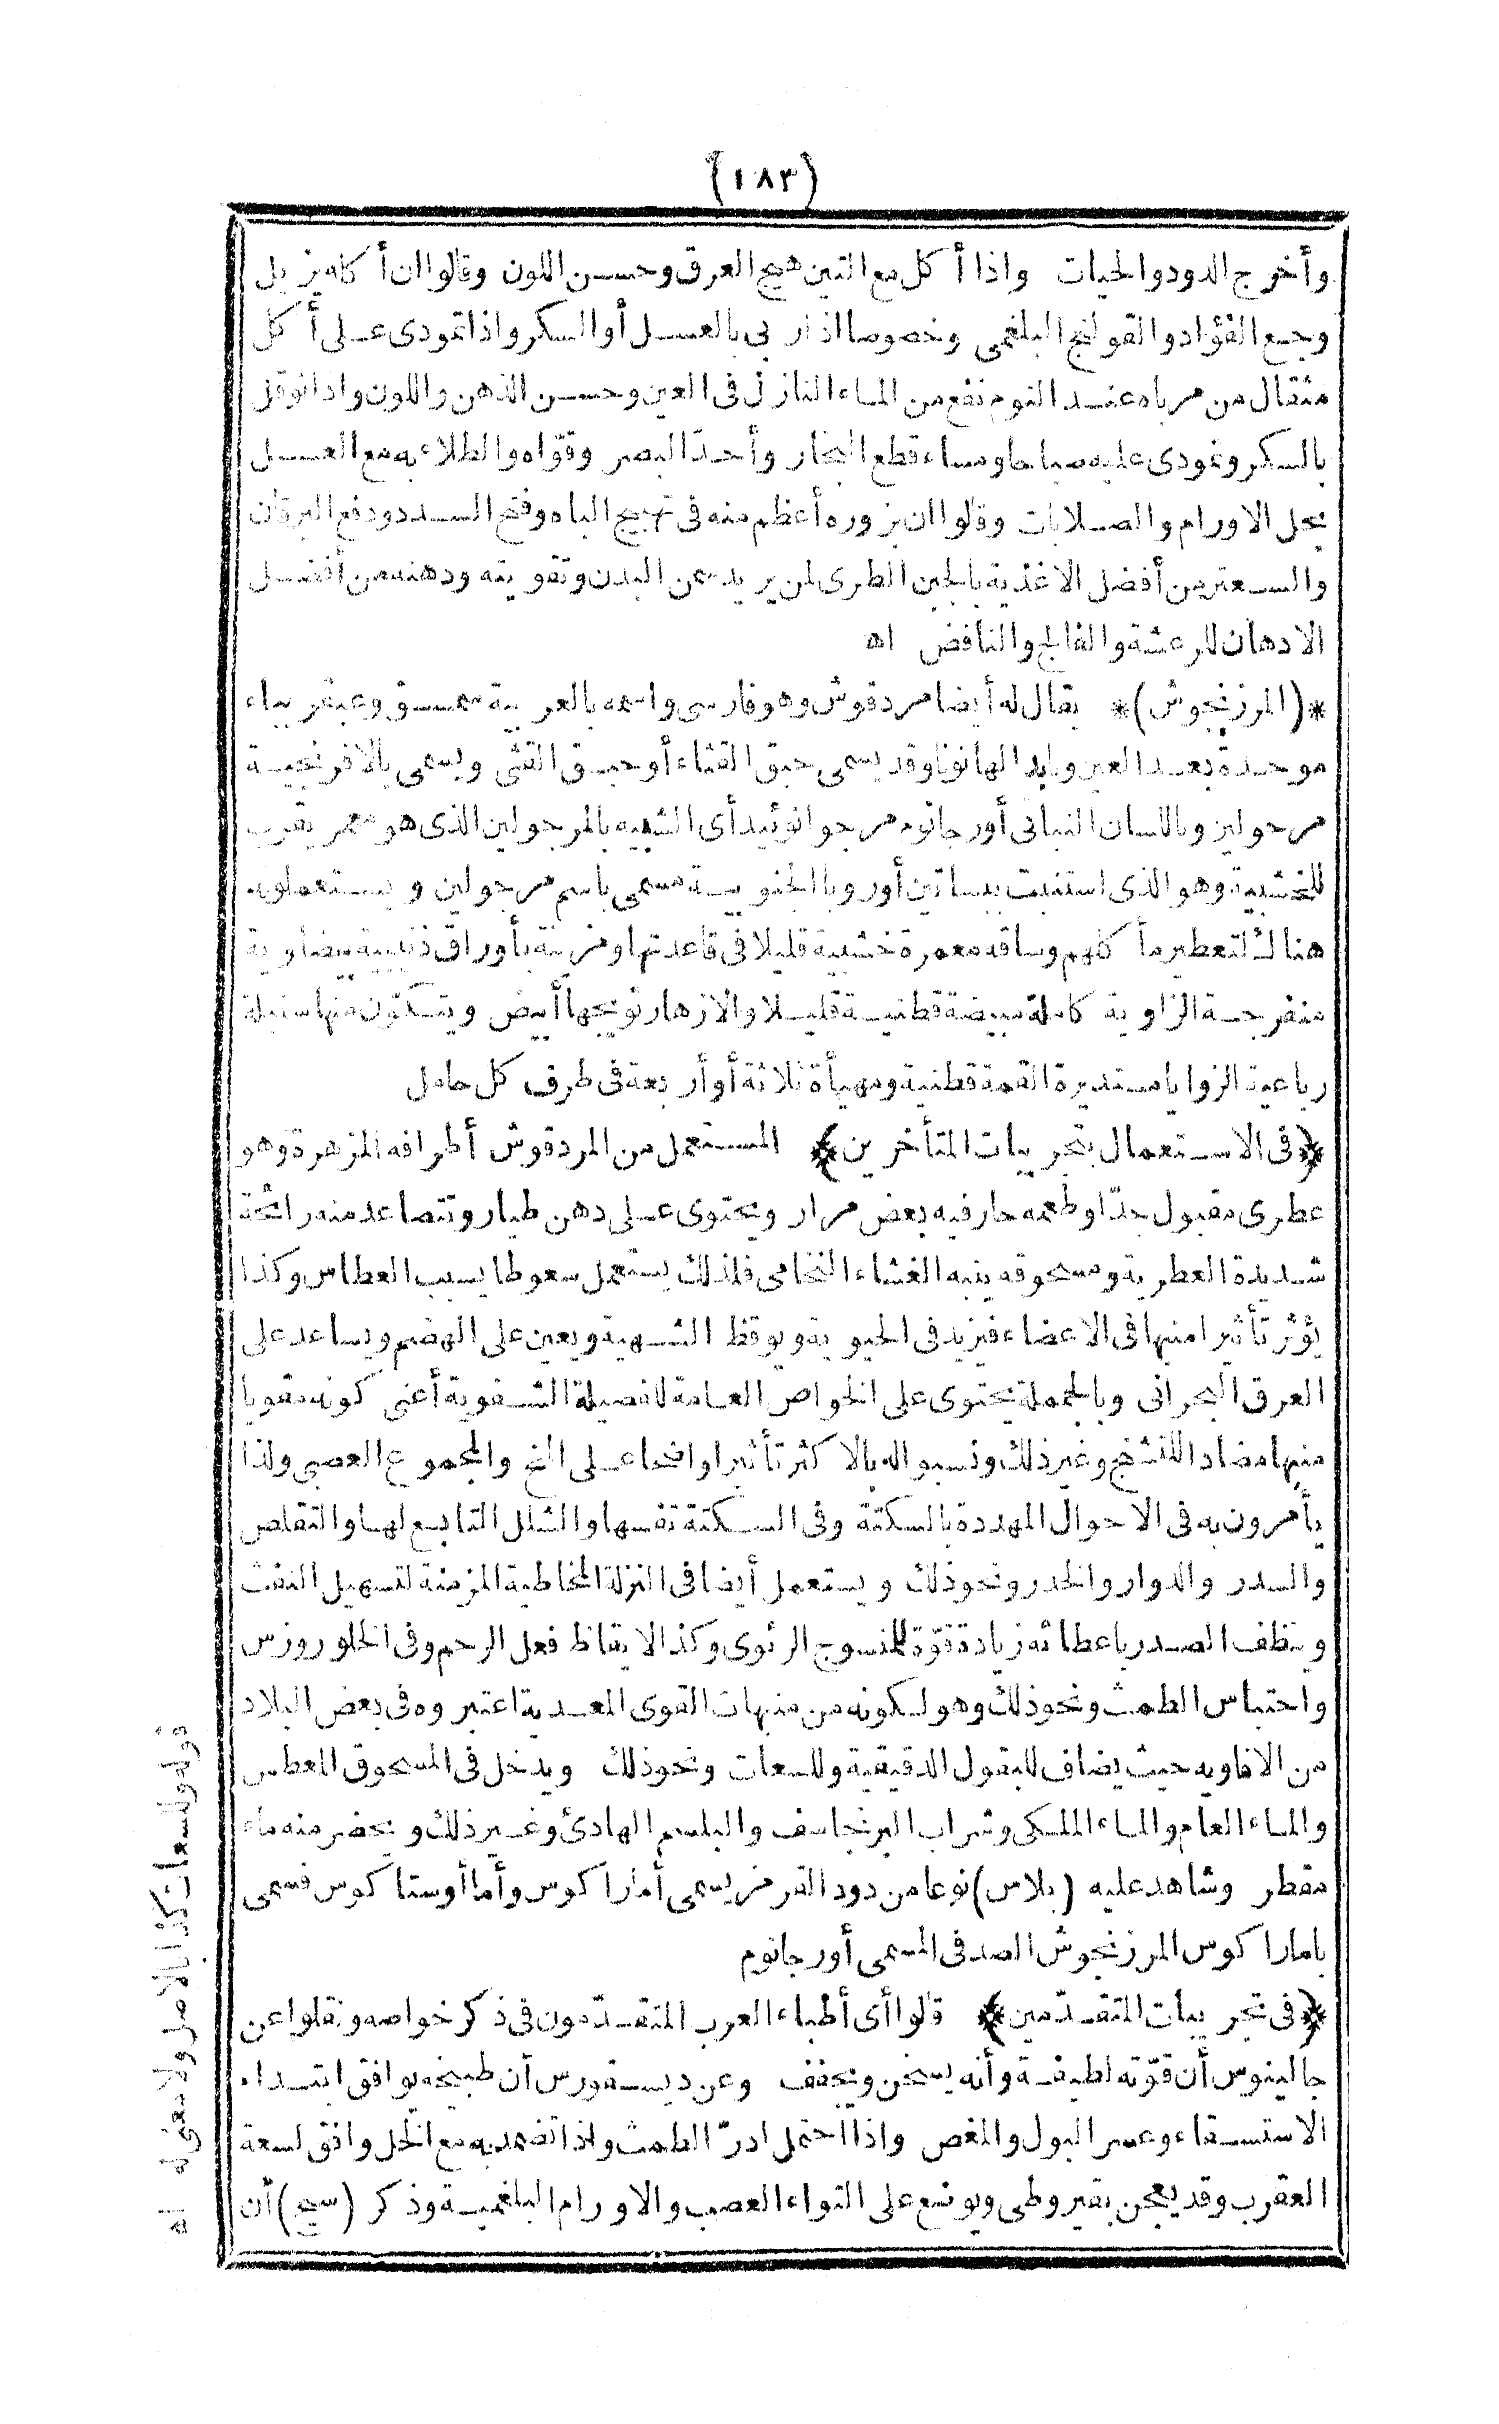 (١٨٣)
وأخرج الدود والحيات واذا أكل مع التين هيج العرق وحسن اللون وقالوا ان أكله يزيل
وجع الفؤاد والقولنج البلغمى وخصوصا اذا ربى بالعسل أو السكر واذا تمودى على أكل
مثقال من مرباه عند النوم نفع من الماء النازل فى العين وحسن الذهن واللون واذا نوقز
بالسكر وتمودى عليه صباحا ومساء قطع البخار وأحدّ البصر وقوّاه والطلاء به مع العسل
يحل الاورام والصلابات وقالوا ان بزوره أعظم منه فى تهييج الباه وفتح السدد ودفع اليرقان
والسعتر من أفضل الاغذية بالجبن الطرى لمن يريد سمن البدن وتقويته ودهنه من أفضل
الادهان للرعشة والفالج والنافض اه
*(المرزنجوش)* يقال له أيضا مردقوش وهو فارسى واسمه بالعربية سمسق وعبقر بباء
موحدة بعد العين وابدالها نونا وقد يسمى حبق القثاء أو حبق القثى ويسمى بالافرنجية
مرجولين وباللسان النباتى أورجانوم مرجوانوئيد أى الشبيه بالمرجولين الذى هو معمر يقرب
للخشبية وهو الذى استنبت ببساتين أوروبا الجنوبية مسمى باسم مرجولين ويستعملونه
هناك لتعطير مأكلهم وساقه معمرة خشبية قليلا فى قاعدتها ومزينة بأوراق ذنيبية بيضاوية
منفرجة الزاوية كاملة مبيضة قطنية قليلا والازهار تويجها أبيض ويتكوّن منها سنبلة
رباعية الزوايا مستديرة القمة قطنية ومهيأة ثلاثة أو أربعة فى طرف كل حامل
﴿فى الاستعمال بتجربيات المتأخرين﴾ المستعمل من المردقوش أطرافه المزهرة وهو
عطرى مقبول جدّا وطعمه حار فيه بعض مرار ويحتوى على دهن طيار وتتصاعد منه رائحة
شديدة العطرية ومسحوقه ينبه الغشاء النخامى فلذلك يستعمل سعوطا يسبب العطاس وكذا
يؤثر تأثيرا منبها فى الاعضاء فيزيد فى الحيوية ويوقظ الشهية ويعين على الهضم ويساعد على
العرق البحرانى وبالجملة يحتوى على الخواص العامة للفصيلة الشفوية أعنى كونه مقويا
منبها مضادا للتشنج وغير ذلك ونسبوا له بالاكثر تأثيرا واضحا على المخ والمجموع العصبى ولذا
يأمرون به فى الاحوال المهددة بالسكتة وفى السكتة نفسها والشلل التابع لها والتقلص
والسدر والدوار والخدر ونحو ذلك ويستعمل أيضا فى النزلة المخاطية المزمنة لتسهيل النفث
وينظف الصدر باعطائه زيادة قوّة للمنسوج الرئوى وكذا لايقاظ فعل الرحم وفى الخلوروزس
واحتباس الطمث ونحو ذلك وهو لكونه من منبهات القوى المعدية اعتبروه فى بعض البلاد
من الافاويه حيث يضاف للبقول الدقيقية وللسعات ونحو ذلك ويدخل فى المسحوق المعطس
والماء العام والماء الملكى وشراب البرنجاسف والبلسم الهادئ وغير ذلك ويحضر منه ماء
مقطر وشاهد عليه (بلاس) نوعا من دود القرمز يسمى أمارا كوس وأما أوستا كوس فسمى
بامارا كوس المرزنجوش الصدفى المسمى أورجانوم
﴿فى تجربيات المتقدّمين﴾ قالوا أى أطباء العرب المتقدّمون فى ذكر خواصه ونقلوا عن
جالينوس أن قوّته لطيفة وأنه يسخن ويجفف وعن ديسقورس أن طبيخه يوافق ابتداء
الاستسقاء وعسر البول والمغص واذا احتمل ادرّ الطمث واذا تضمد به مع الخل وافق لسعة
العقرب وقد يعجن بقيروطى ويوضع على التواء العصب والاورام البلغمية وذكر (سح) أن
قوله وللسعات كذا بالاصل ولا معنى له اه